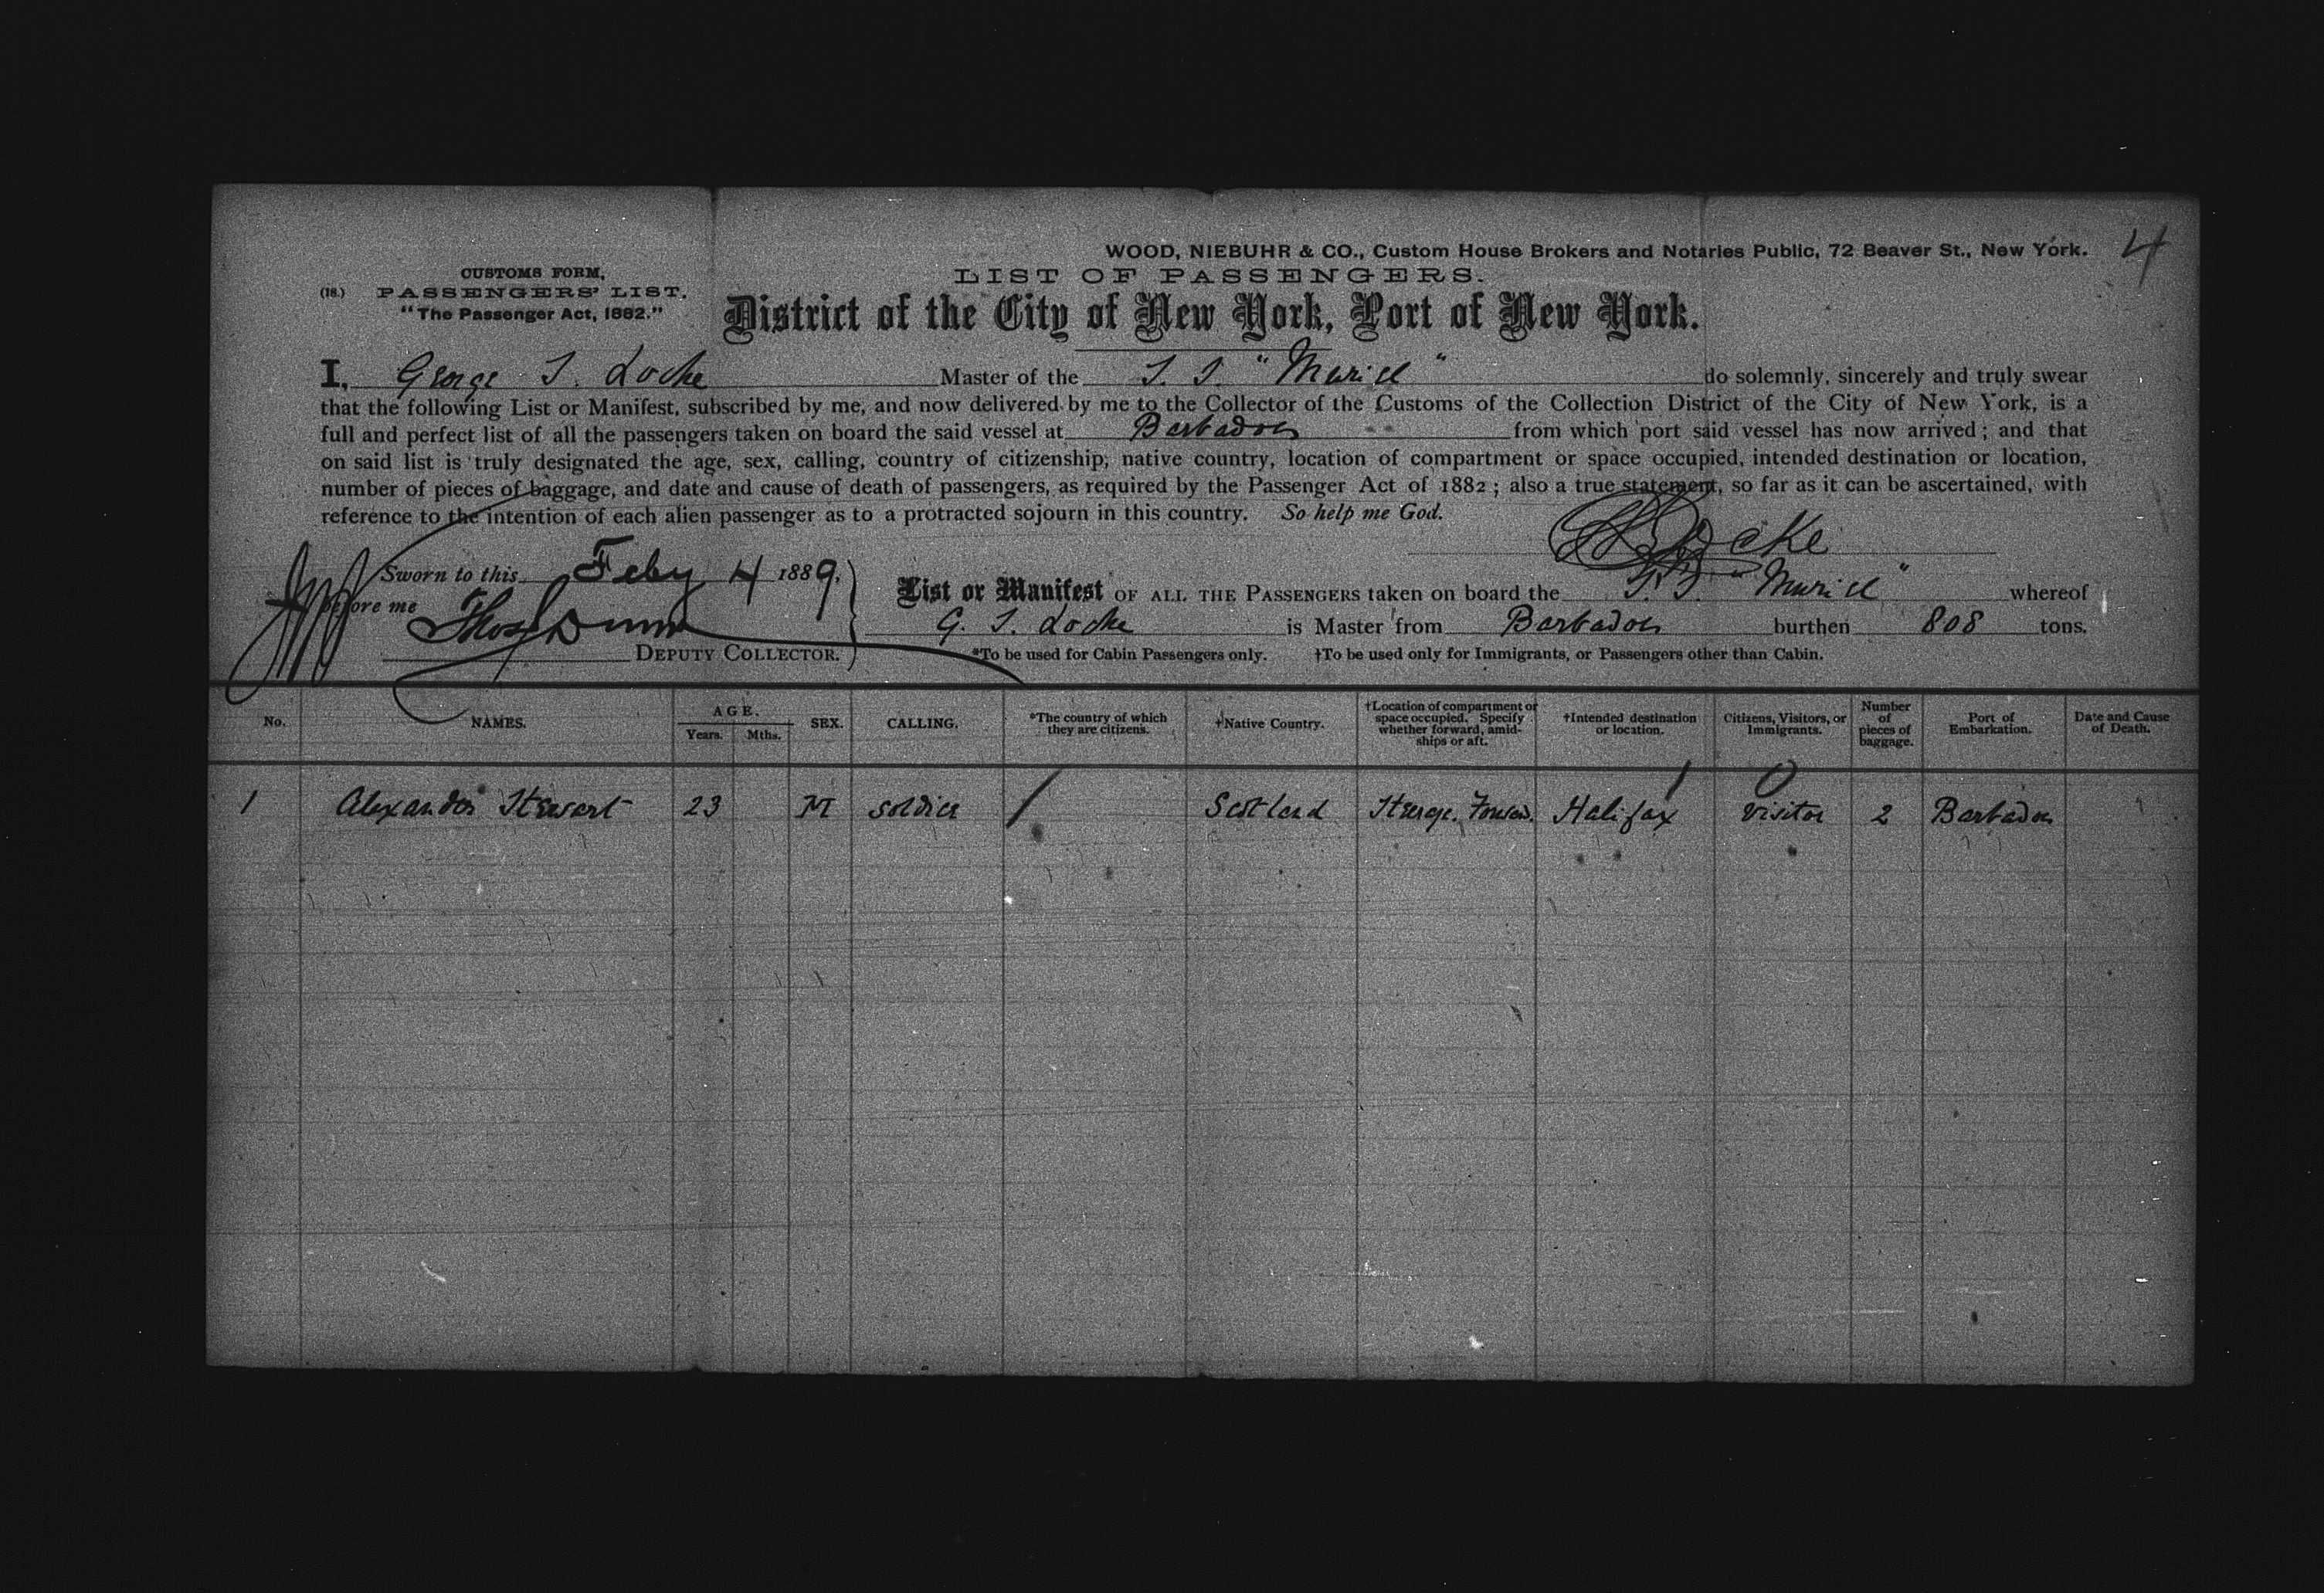 WOOD, NIEBUHR & CO., Custom House Brokers and Notaries Public, 72 Beaver St., New York.
4
CUSTOMS FORM,
(18.) PASSENGERS' LIST,
"The Passenger Act, 1882."
LIST OF PASSENGERS.
District of the City of New York, Port of New York.
I, George S. Locke Master of the S. S. "Muriel" do solemnly, sincerely and truly swear
that the following List or Manifest, subscribed by me, and now delivered by me to the Collector of the Customs of the Collection District of the City of New York, is a
full and perfect list of all the passengers taken on board the said vessel at Barbados from which port said vessel has now arrived; and that
on said list is truly designated the age, sex, calling, country of citizenship, native country, location of compartment or space occupied, intended destination or location,
number of pieces of baggage, and date and cause of death of passengers, as required by the Passenger Act of 1882; also a true statement, so far as it can be ascertained, with
reference to the intention of each alien passenger as to a protracted sojourn in this country. So help me God.
Locke
Sworn to this Feby 4 1889,
before me Thos Dunn
DEPUTY COLLECTOR.
List or Manifest OF ALL THE PASSENGERS taken on board the S.S. "Muriel" whereof
G. S. Locke is Master from Barbados burthen 808 tons.
*To be used for Cabin Passengers only. †To be used only for Immigrants, or Passengers other than Cabin.
No. NAMES. AGE. Years. Mths. SEX. CALLING. *The country of which they are citizens. †Native Country. †Location of compartment or space occupied. Specify whether forward, amidships or aft. †Intended destination or location. Citizens, Visitors, or Immigrants. Number of pieces of baggage. Port of Embarkation. Date and Cause of Death.
1 Alexander Stewart 23 M soldier / Scotland Steerge. Forwd. Halifax visitor 2 Barbados